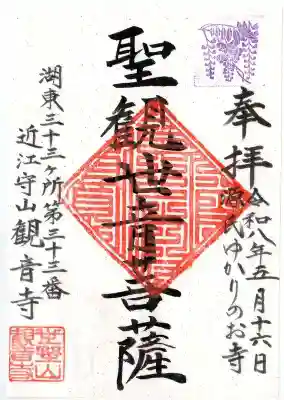 奉拝
令和八年五月十六日
源氏ゆかりのお寺
聖観世音菩薩
湖東三十三ヶ所第三十三番
近江守山観音寺